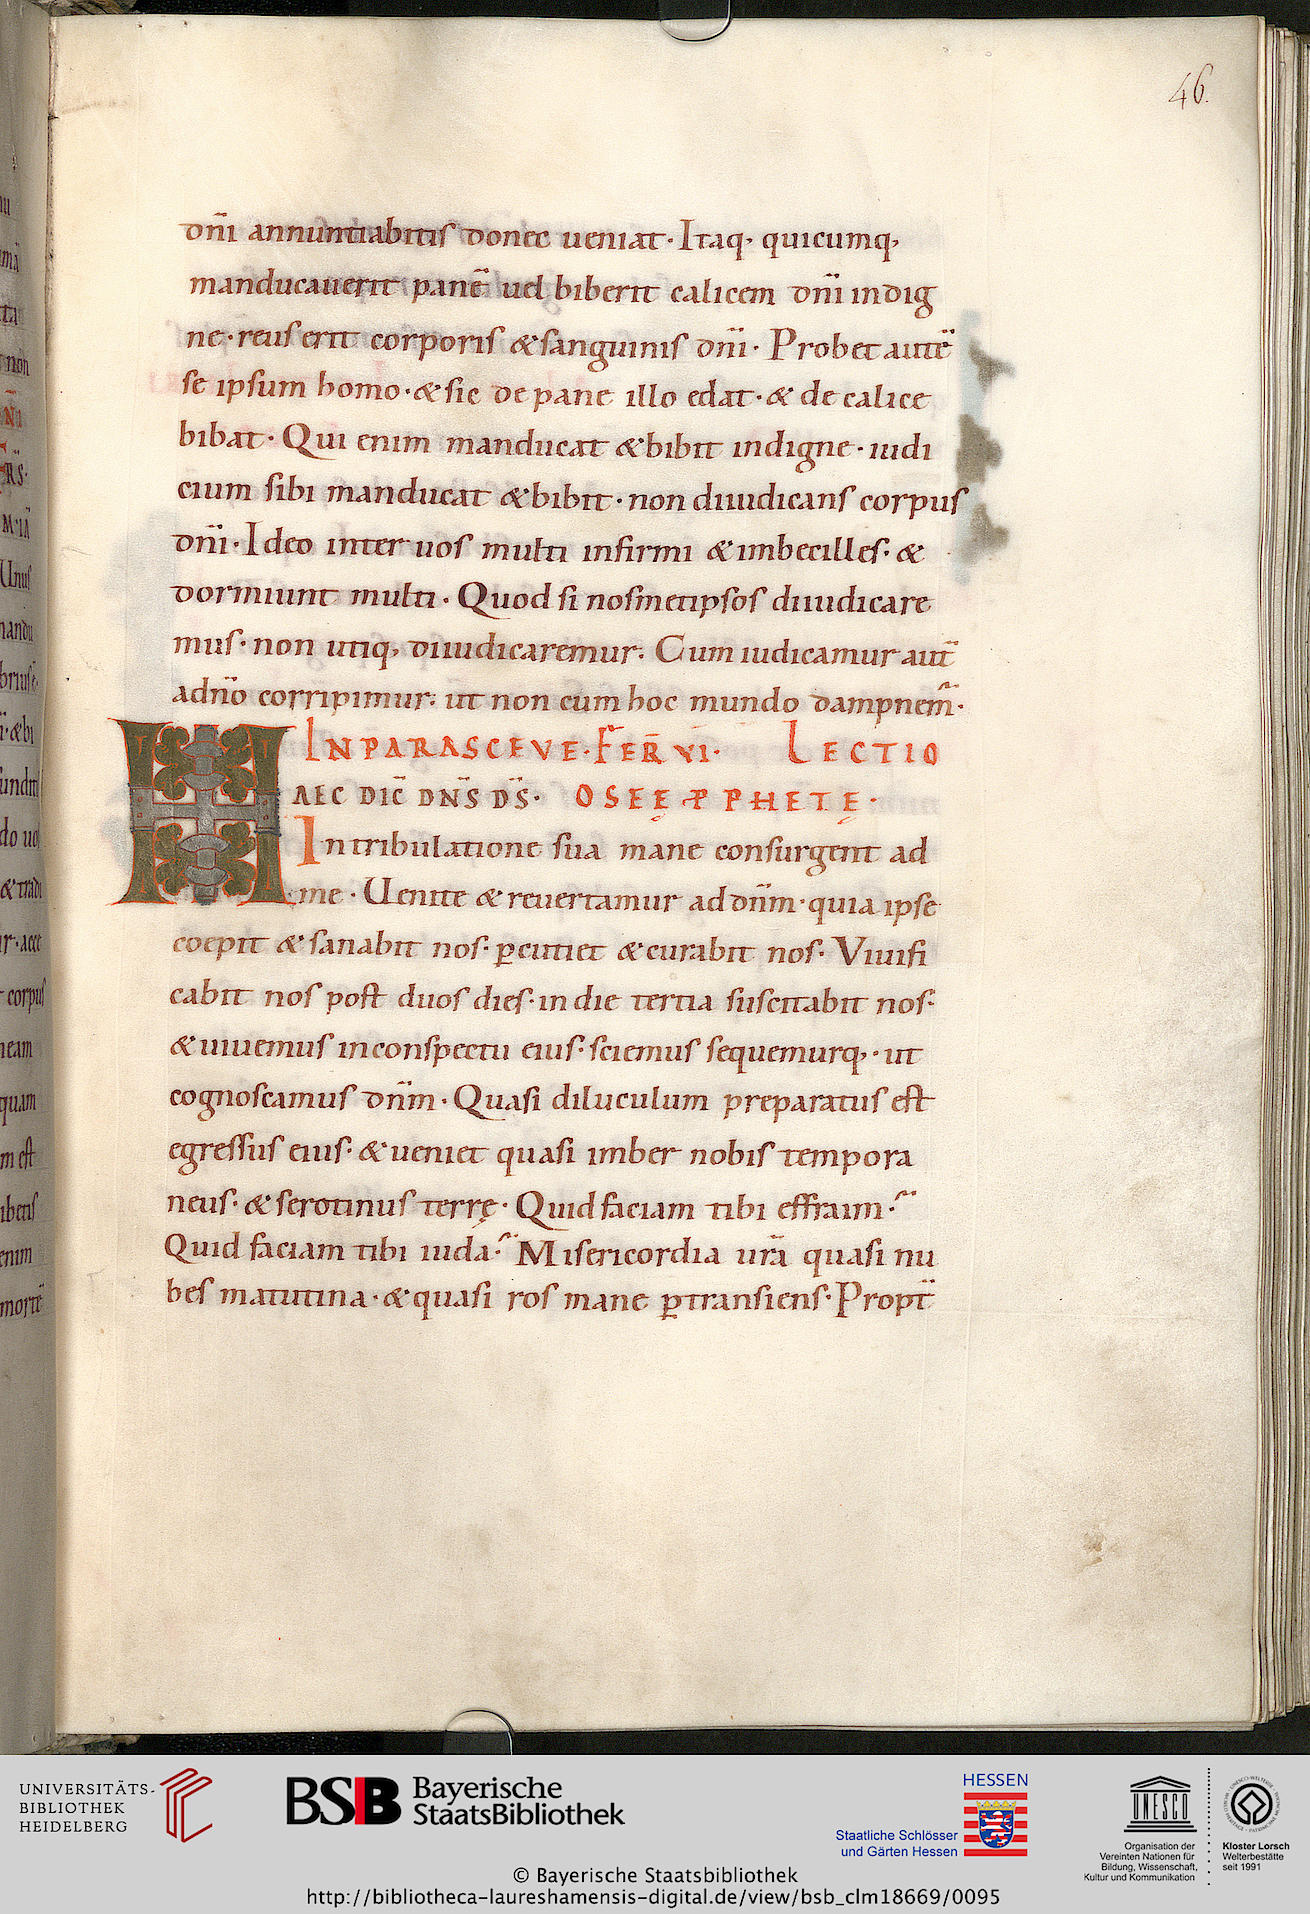 46.
dñi annuntiabitis donec ueniat· Itaq, quicumq,
manducauerit panē uel biberit calicem dñi indig
ne· reus erit corporis & sanguinis dñi· Probet autē
se ipsum homo· & sic de pane illo edat· & de calice
bibat· Qui enim manducat & bibit indigne· iudi
cium sibi manducat & bibit· non diiudicans corpus
dñi· Ideo inter uos multi infirmi & imbecilles· &
dormiunt multi· Quod si nosmetipsos diiudicare
mus· non utiq, diiudicaremur· Cum iudicamur aut̄
ad dn̄o corripimur· ut non cum hoc mundo dampnem̄·
IN PARASCEVE· FER̄ VI· LECTIO
HAEC DIC̄ DN̄S D̄S· OSEĘ PPHETĘ·
In tribulatione sua mane consurgent ad
me· Uenite & reuertamur ad dn̄m· quia ipse
coepit & sanabit nos· ꝑcutiet & curabit nos· Viuifi
cabit nos post duos dies· in die tertia suscitabit nos·
& uiuemus in conspectu eius· sciemus sequemurq,· ut
cognoscamus dn̄m· Quasi diluculum preparatus est
egressus eius· & ueniet quasi imber nobis tempora
neus· & serotinus terrę· Quid faciam tibi effraim·
Quid faciam tibi iuda· Misericordia ur̄a quasi nu
bes matutina· & quasi ros mane ꝑtransiens· Propt̄
UNIVERSITÄTS-
BIBLIOTHEK
HEIDELBERG
BSB Bayerische
StaatsBibliothek
HESSEN
Staatliche Schlösser
und Gärten Hessen
UNESCO
Organisation der
Vereinten Nationen für
Bildung, Wissenschaft,
Kultur und Kommunikation
Kloster Lorsch
Welterbestätte
seit 1991
© Bayerische Staatsbibliothek
http://bibliotheca-laureshamensis-digital.de/view/bsb_clm18669/0095